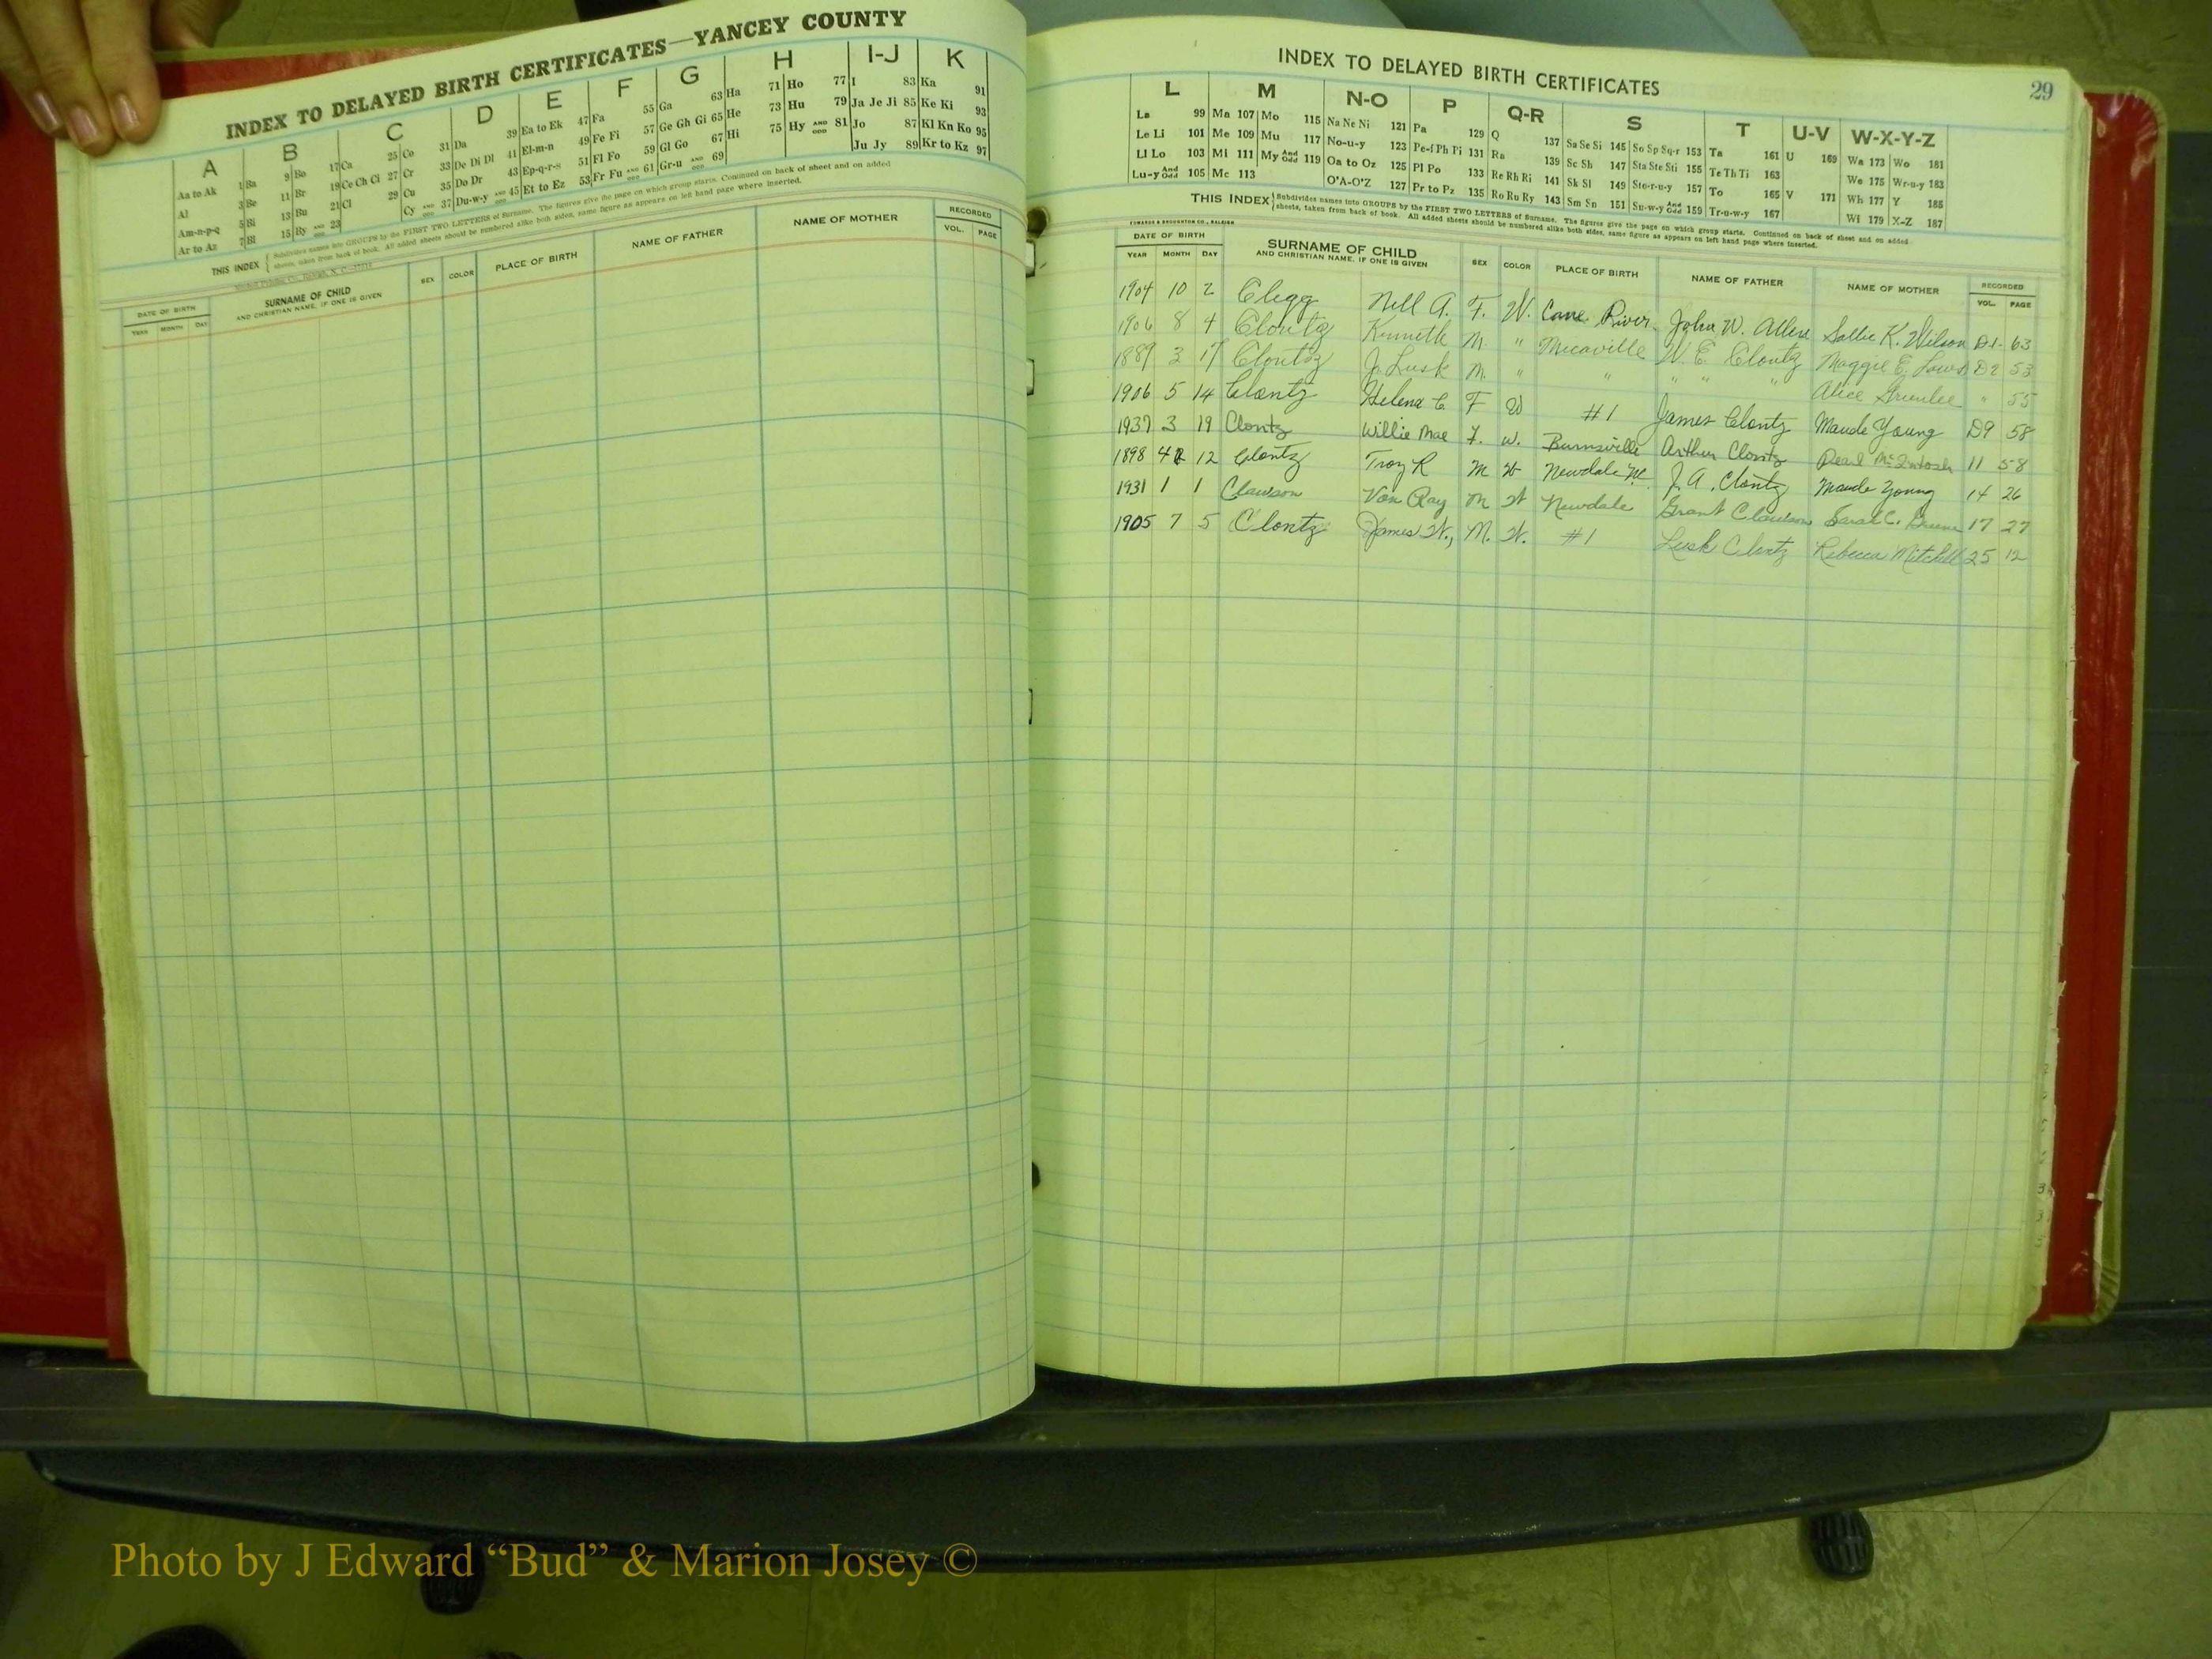 INDEX TO DELAYED BIRTH CERTIFICATES—YANCEY COUNTY
A B C D E F G H I-J K
Aa to Ak 1 Ba 9 Bo 17 Ca 25 Co 31 Da 39 Ea to Ek 47 Fa 55 Ga 63 Ha 71 Ho 77 I 83 Ka 91
Al 3 Be 11 Br 19 Ce Ch Ci 27 Cr 33 De Di Dl 41 El-m-n 49 Fe Fi 57 Ge Gh Gi 65 He 73 Hu 79 Ja Je Ji 85 Ke Ki 93
Am-n-p-q 5 Bi 13 Bu 21 Cl 29 Cu 35 Do Dr 43 Ep-q-r-s 51 Fl Fo 59 Gl Go 67 Hi 75 Hy AND ODD 81 Jo 87 Kl Kn Ko 95
Ar to Az 7 Bl 15 By AND ODD 23 Cy AND ODD 37 Du-w-y AND ODD 45 Et to Ez 53 Fr Fu AND ODD 61 Gr-u AND ODD 69 Ju Jy 89 Kr to Kz 97
THIS INDEX { Subdivides names into GROUPS by the FIRST TWO LETTERS of Surname. The figures give the page on which group starts. Continued on back of sheet and on added
sheets, taken from back of book. All added sheets should be numbered alike both sides, same figure as appears on left hand page where inserted.
DATE OF BIRTH SURNAME OF CHILD SEX COLOR PLACE OF BIRTH NAME OF FATHER NAME OF MOTHER RECORDED
YEAR MONTH DAY AND CHRISTIAN NAME, IF ONE IS GIVEN VOL. PAGE
INDEX TO DELAYED BIRTH CERTIFICATES 29
L M N-O P Q-R S T U-V W-X-Y-Z
La 99 Ma 107 Mo 115 Na Ne Ni 121 Pa 129 Q 137 Sa Se Si 145 So Sp Sq-r 153 Ta 161 U 169 Wa 173 Wo 181
Le Li 101 Me 109 Mu 117 No-u-y 123 Pe-f Ph Pi 131 Ra 139 Sc Sh 147 Sta Ste Sti 155 Te Th Ti 163 We 175 Wr-u-y 183
Ll Lo 103 Mi 111 My And Odd 119 Oa to Oz 125 Pl Po 133 Re Rh Ri 141 Sk Sl 149 Sto-r-u-y 157 To 165 V 171 Wh 177 Y 185
Lu-y And Odd 105 Mc 113 O'A-O'Z 127 Pr to Pz 135 Ro Ru Ry 143 Sm Sn 151 Su-w-y And Odd 159 Tr-u-w-y 167 Wi 179 X-Z 187
THIS INDEX { Subdivides names into GROUPS by the FIRST TWO LETTERS of Surname. The figures give the page on which group starts. Continued on back of sheet and on added
sheets, taken from back of book. All added sheets should be numbered alike both sides, same figure as appears on left hand page where inserted.
EDWARDS & BROUGHTON CO., RALEIGH
DATE OF BIRTH SURNAME OF CHILD SEX COLOR PLACE OF BIRTH NAME OF FATHER NAME OF MOTHER RECORDED
YEAR MONTH DAY AND CHRISTIAN NAME, IF ONE IS GIVEN VOL. PAGE
1904 10 2 Clegg Nell A. F. W. Cane River John W. Allen Sallie K. Wilson D1- 63
1906 8 4 Cloutz Kenneth M. " Micaville W. E. Cloutz Maggie E. D2 53
1889 3 17 Cloutz J. Lusk M. " " " " " Alice Greenlee " 55
1906 5 14 Clontz Helena C. F W #1 James Clontz Maude Young D9 58
1937 3 19 Clontz Willie Mae F. W. Burnsville Arthur Clontz Pearl McIntosh 11 58
1898 4 12 Clontz Troy R M W Newdale J. A. Clontz Maude Young 14 26
1931 1 1 Clawson Von Ray M W Newdale Grant Clawson Sarah C. 17 27
1905 7 5 Clontz James W., M. W. #1 Lusk Clontz Rebecca Mitchell 25 12
Photo by J Edward “Bud” & Marion Josey ©